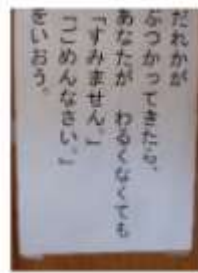 だれかが
ぶつかってきたら、
あなたが わるくなくても
「すみません。」
「ごめんなさい。」
をいおう。